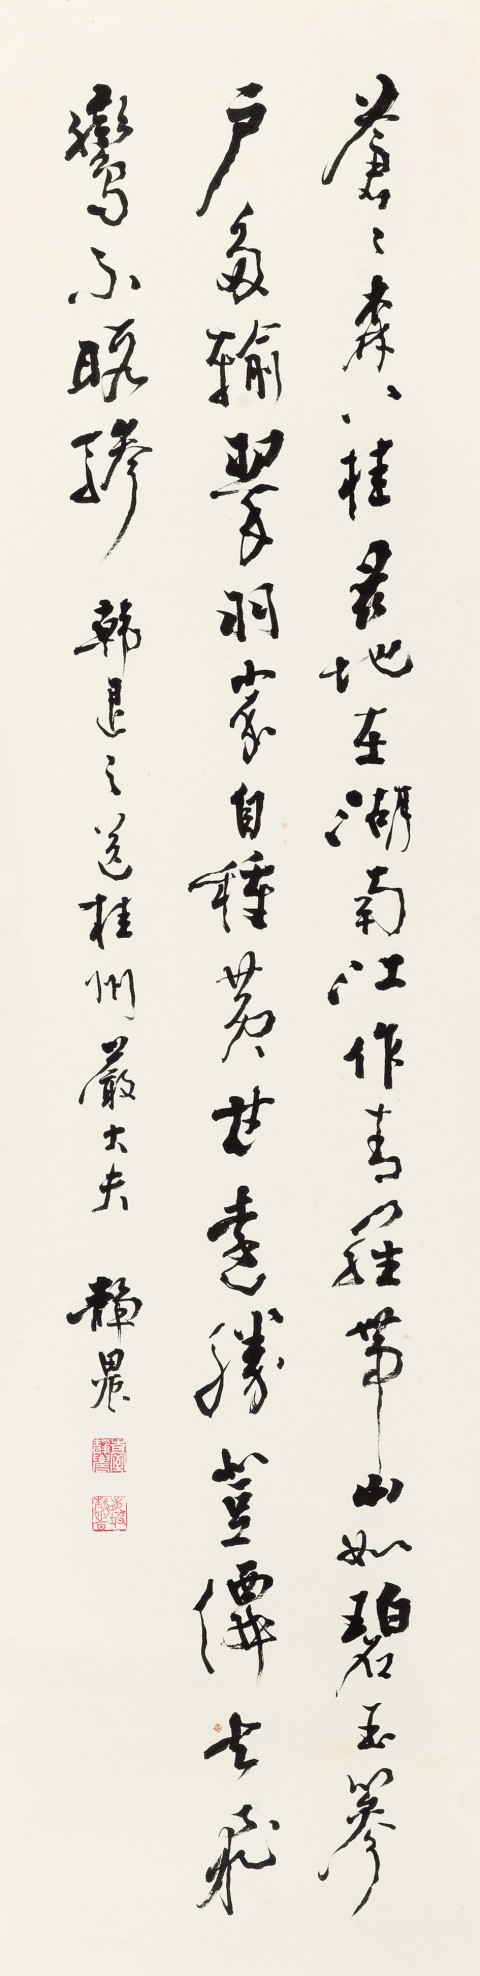 蒼〻森八桂茲地在湖南江作青羅帶山如碧玉篸
戶多輸翠羽家自種黃甘遠勝登僊去飛
鸞不暇驂 韓退之送桂州嚴大夫 靜農